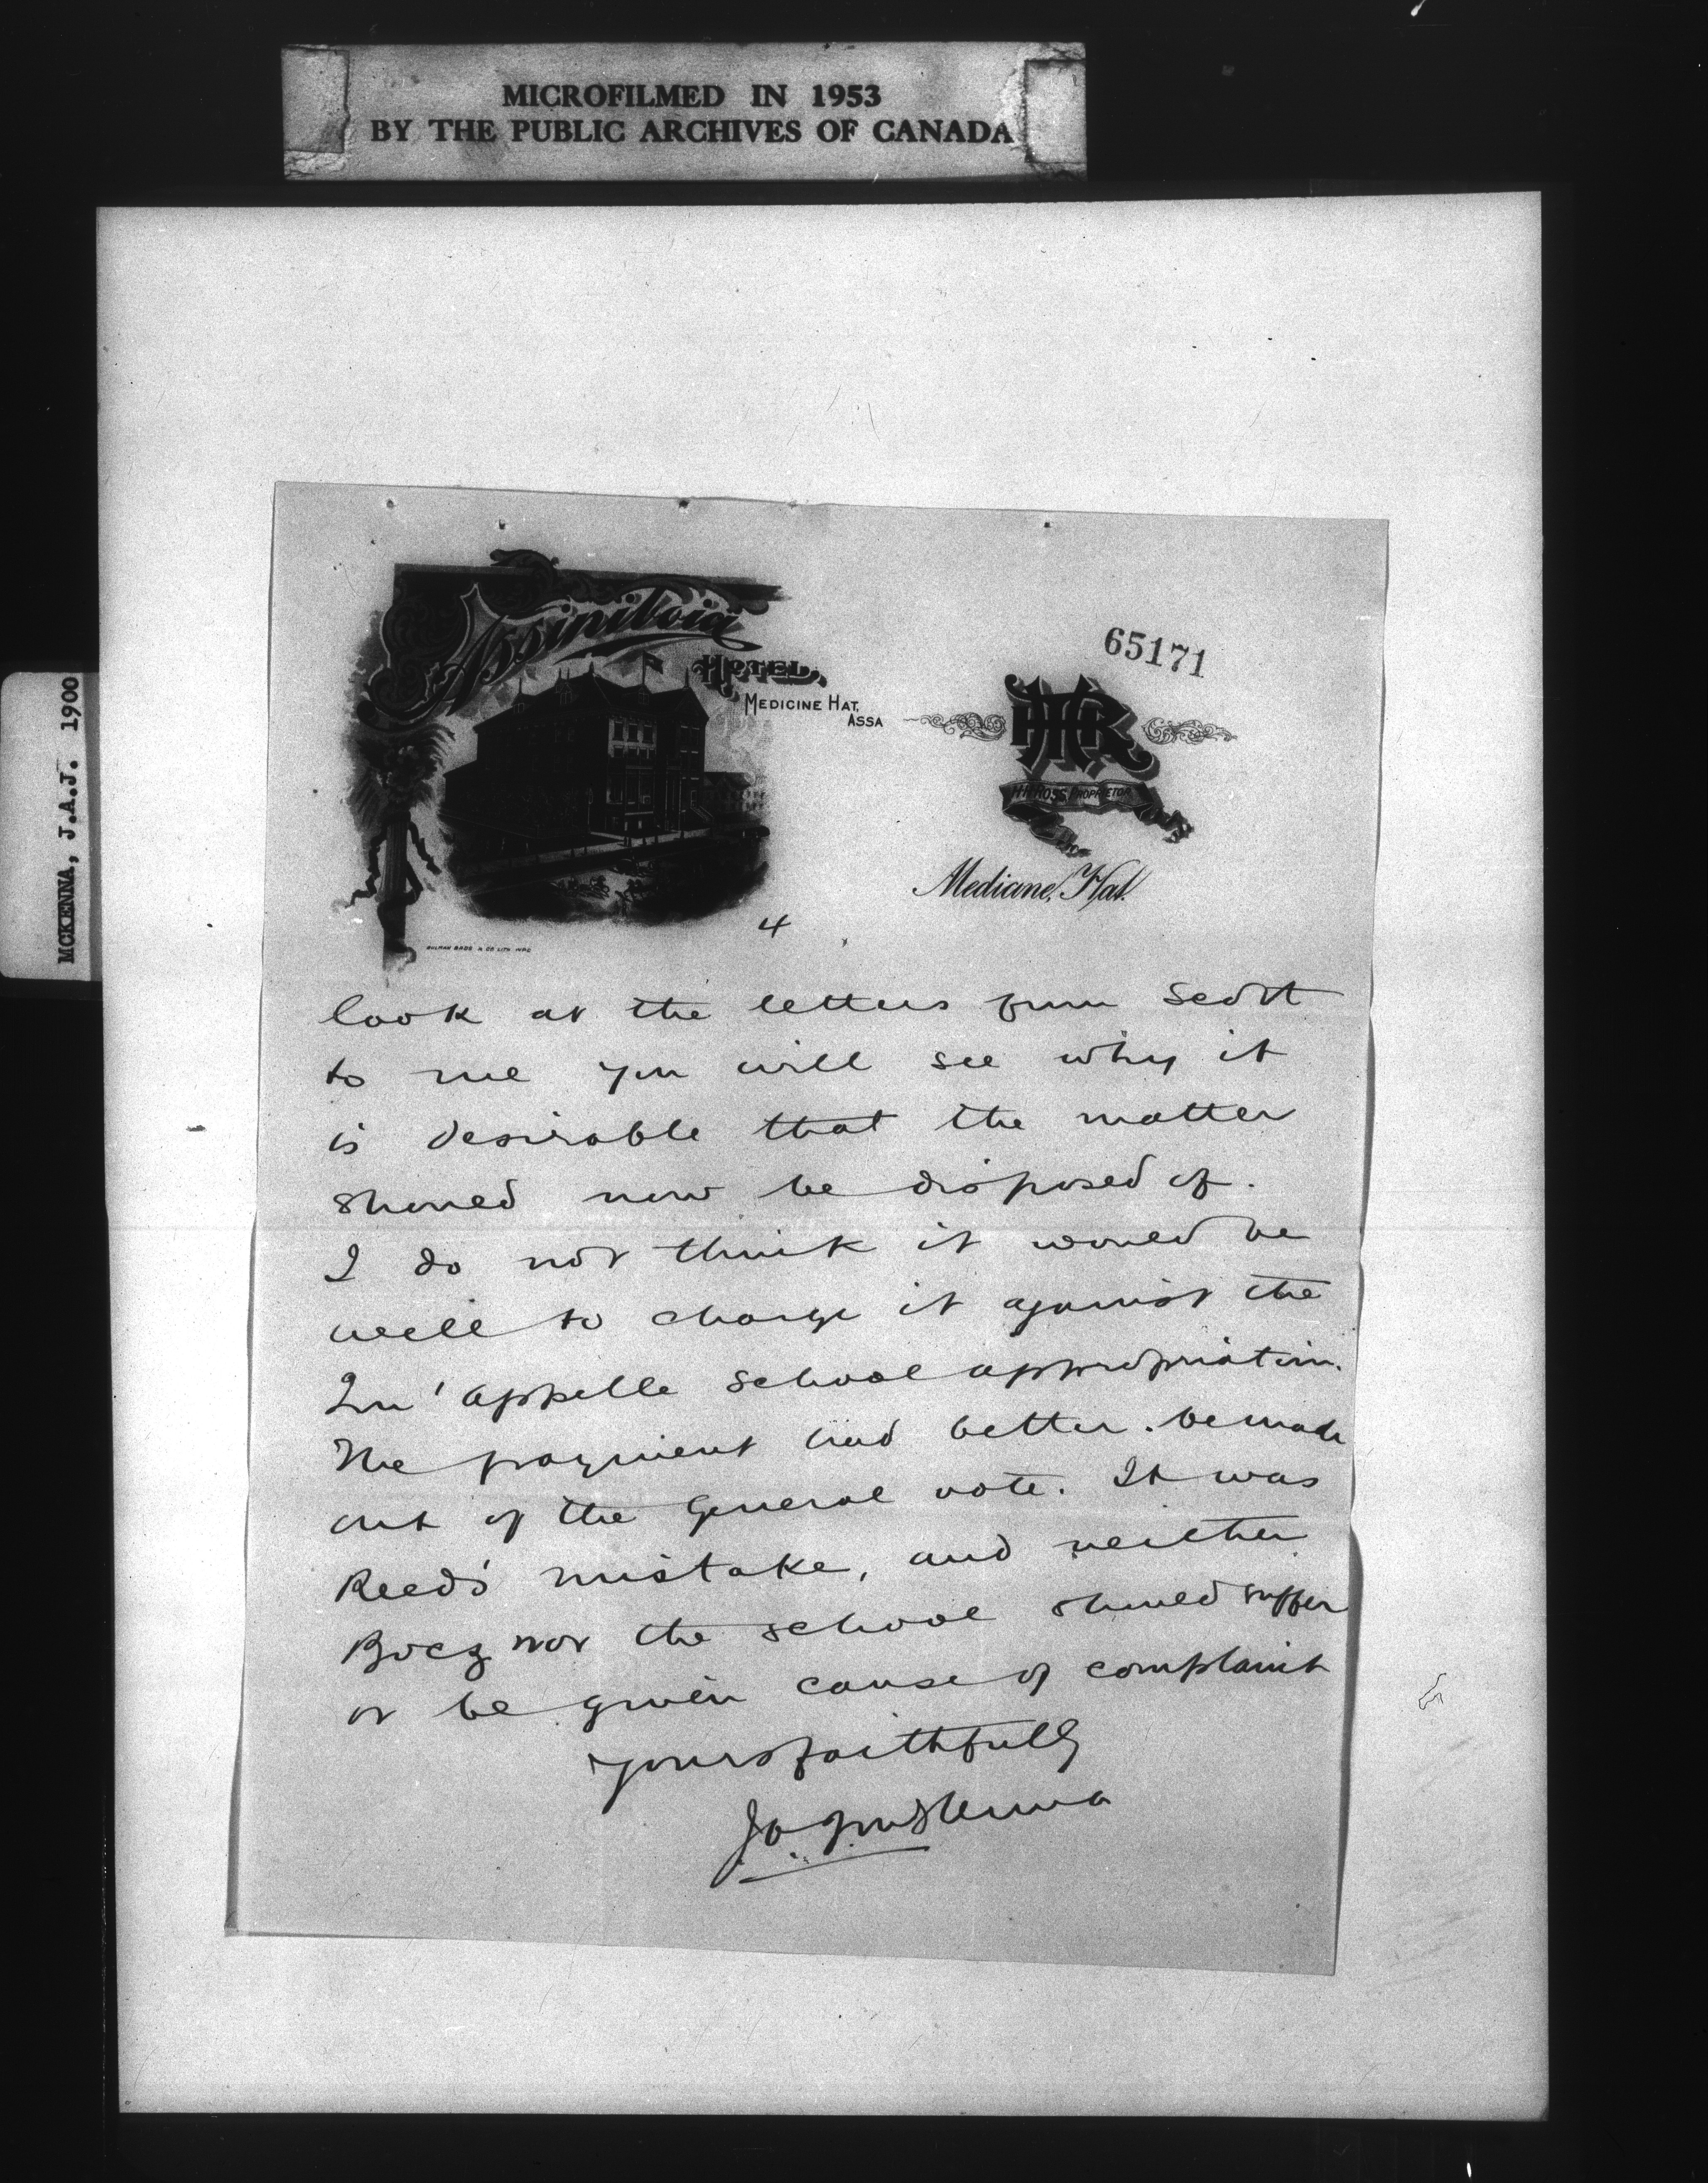 MICROFILMED IN 1953
BY THE PUBLIC ARCHIVES OF CANADA
MCKENNA, J.A.J. 1900
Assiniboia
HOTEL,
MEDICINE HAT,
ASSA
65171
HHR
H.H. ROSS PROPRIETOR
Medicine, Hat.
BULMAN BROS & CO LITH WPG
4
look at the letters from Scott
to me you will see why it
is desirable that the matter
should now be disposed of.
I do not think it would be
well to charge it against the
Qu'appelle School appropriation.
The payment had better be made
out of the General vote. It was
Reed's mistake, and neither
nor the school should suffer
or be given cause of complaint
Yours faithfully
J A J McKenna